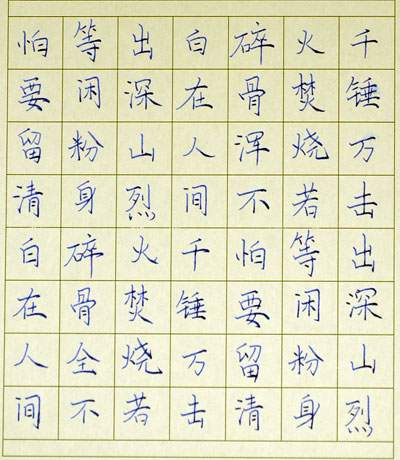 千锤万击出深山烈
火焚烧若等闲粉身
碎骨浑不怕要留清
白在人间千锤万击
出深山烈火焚烧若
等闲粉身碎骨全不
怕要留清白在人间